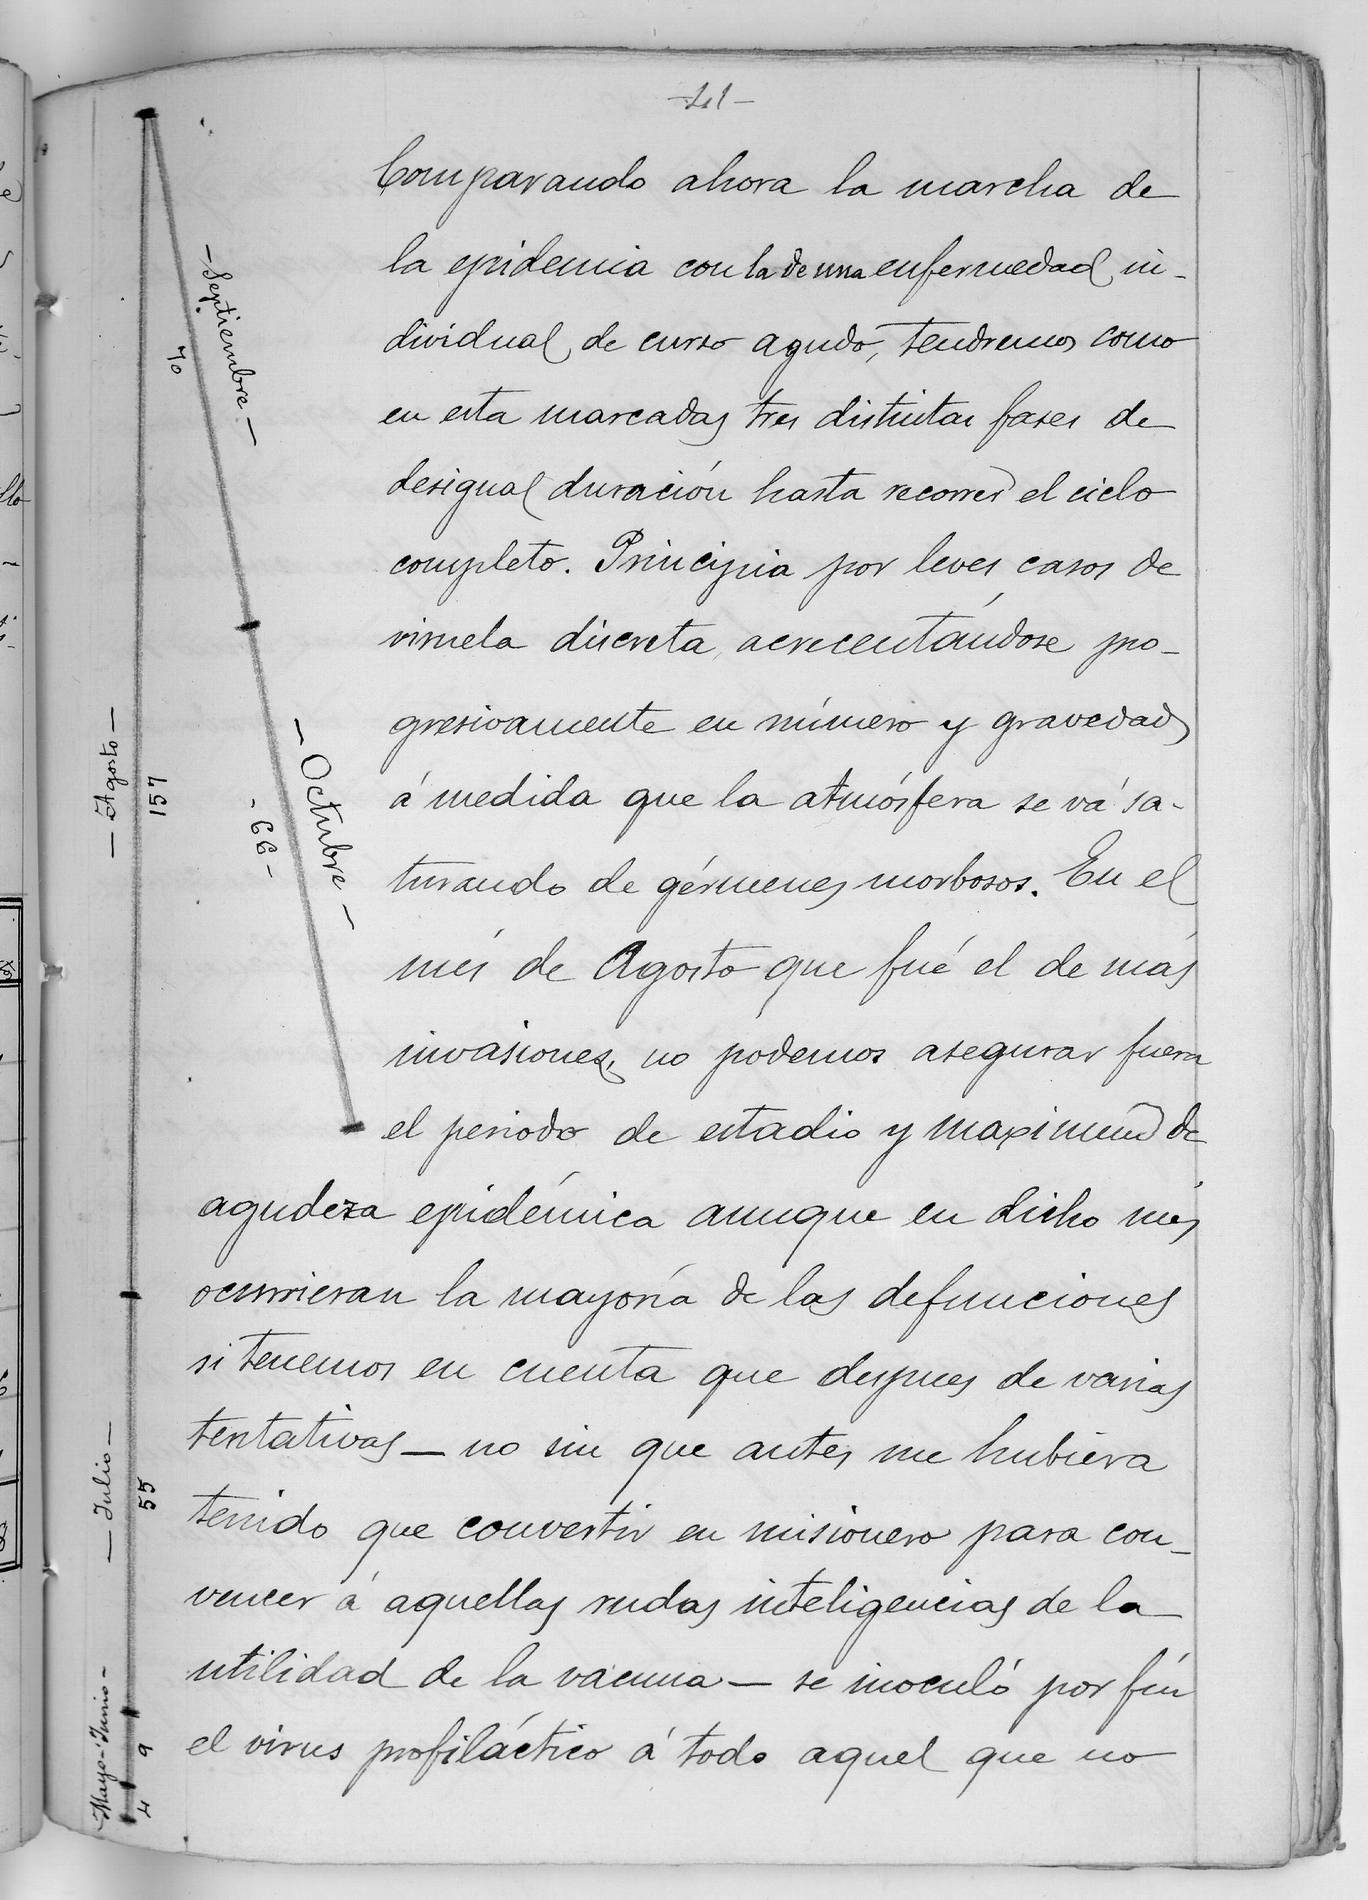 -41-
Comparando ahora la marcha de
la epidemia con la de una enfermedad in-
dividual de curso agudo, tendremos como
en esta marcadas tres distintas fases de
desigual duración hasta recorrer el ciclo
completo. Principia por leves casos de
viruela discreta, acrecentándose pro-
gresivamente en número y gravedad
á medida que la atmósfera se vá sa-
turando de gérmenes morbosos. En el
més de Agosto que fué el de más
invasiones, no podemos asegurar fuera
el periodo de estadio y maximum de
agudeza epidémica aunque en dicho més
ocurrieran la mayoría de las defunciones
si tenemos en cuenta que despues de varias
tentativas — no sin que antes me hubiera
tenido que convertir en misionero para con-
vencer á aquellas rudas inteligencias de la
utilidad de la vacuna — se inoculó por fín
el virus profiláctico á todo aquel que no
— Septiembre —
70
— Octubre —
- 66 -
— Agosto —
157
— Julio —
55
Mayo - Junio -
4 9